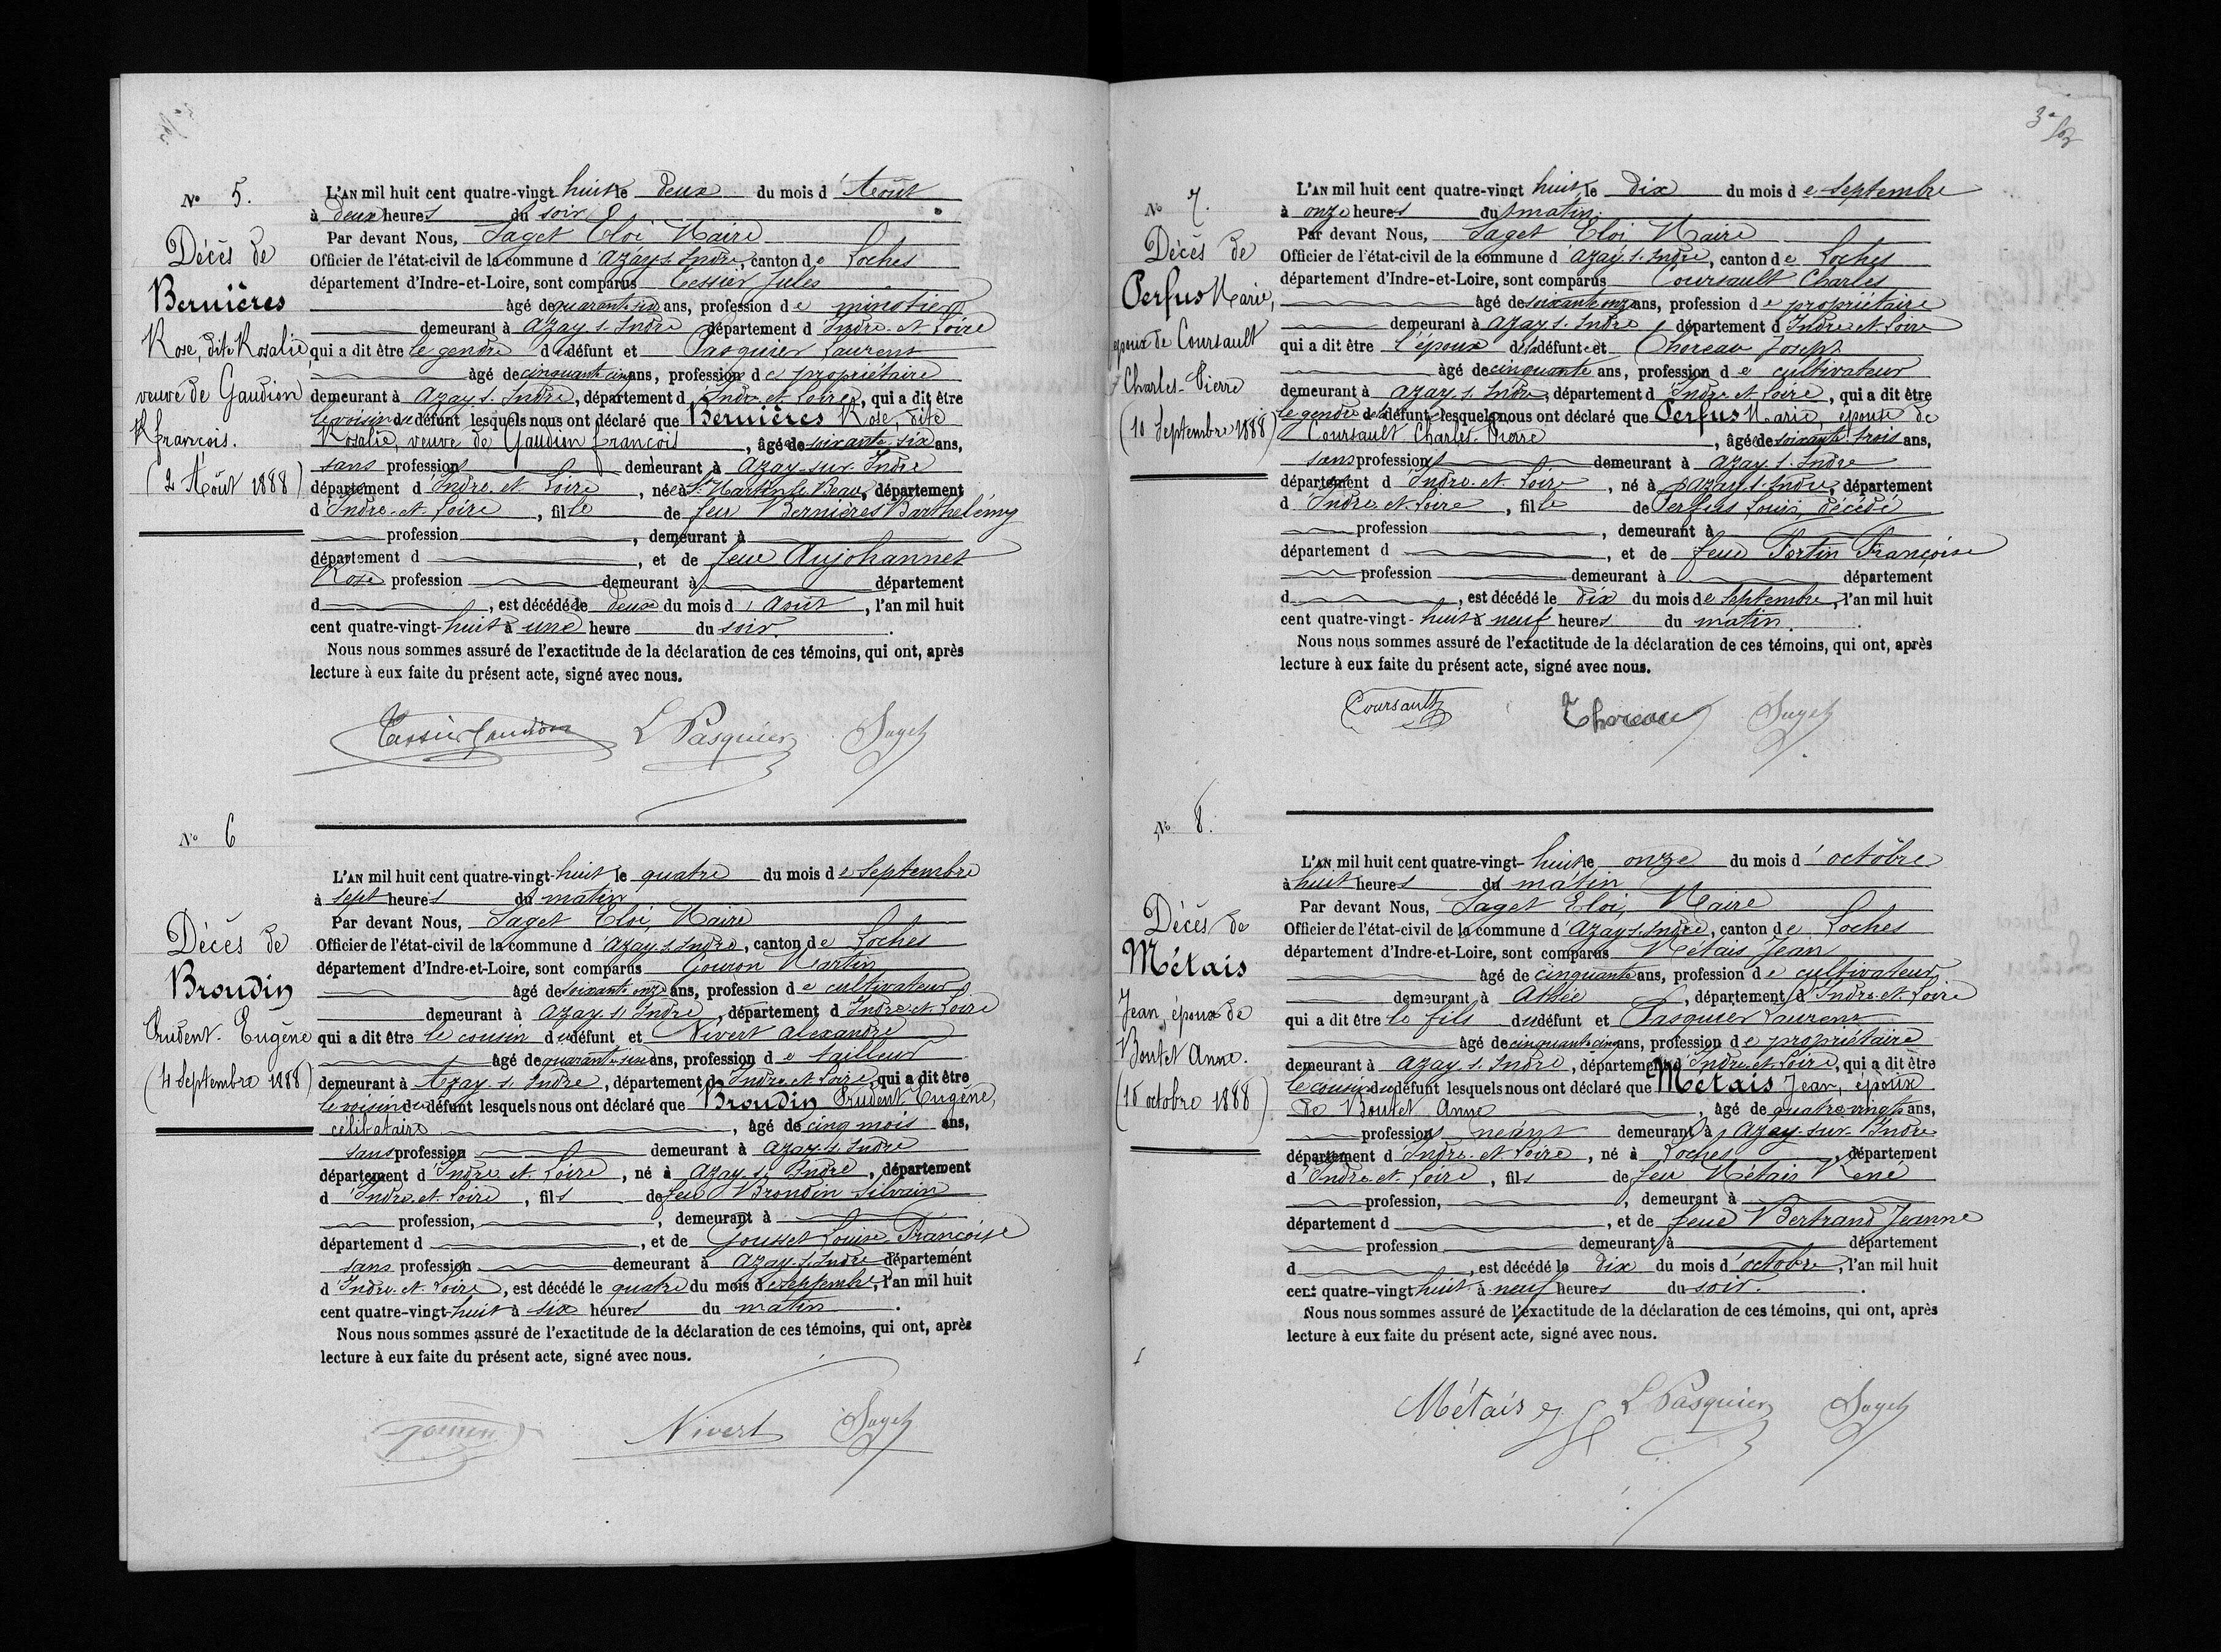 N° 5.
Décès de
Bernières
Rose, dite Rosalie
veuve de Gaudion
François.
(2 Août 1888)
L'AN mil huit cent quatre-vingt huit le deux du mois d'Août
à deux heures du soir
Par devant Nous, Saget Eloi Maire
Officier de l'état-civil de la commune d'Azay s. Indre, canton de Loches
département d'Indre-et-Loire, sont comparus Tessier Jules
âgé de quarante six ans, profession de minotier
demeurant à Azay s. Indre département d'Indre-et-Loire
qui a dit être le gendre du défunt et Pasquier Laurent
âgé de cinquante cinq ans, profession de propriétaire
demeurant à Azay s. Indre, département d'Indre et Loire, qui a dit être
le voisin du défunt lesquels nous ont déclaré que Bernières Rose, dite
Rosalie, veuve de Gaudion françois, âgée de soixante-six ans,
sans profession demeurant à Azay-sur-Indre
département d'Indre-et-Loire, née à St Martin le Beau, département
d'Indre-et-Loire, fille de feu Bernières Barthélémy
profession, demeurant à
département d, et de feue Aujohannet
Rose profession demeurant à département
d, est décédée le deux du mois d'Août, l'an mil huit
cent quatre-vingt-huit à une heure du soir.
Nous nous sommes assuré de l'exactitude de la déclaration de ces témoins, qui ont, après
lecture à eux faite du présent acte, signé avec nous.
Tessier Gaudion L Pasquier Saget
N° 6
Décès de
Broudin
Prudent-Eugène
(4 Septembre 1888)
L'AN mil huit cent quatre-vingt-huit le quatre du mois de Septembre
à sept heures du matin
Par devant Nous, Saget Eloi, Maire
Officier de l'état-civil de la commune d'Azay s. Indre, canton de Loches
département d'Indre-et-Loire, sont comparus Gouron Martin
âgé de soixante onze ans, profession de cultivateur
demeurant à Azay s. Indre, département d'Indre-et-Loire
qui a dit être le cousin du défunt et Nivert Alexandre
âgé de quarante ans, profession de tailleur
demeurant à Azay s. Indre, département d'Indre et Loire, qui a dit être
le voisin du défunt lesquels nous ont déclaré que Broudin Prudent Eugène,
célibataire, âgé de cinq mois ans,
sans profession demeurant à Azay s. Indre
département d'Indre et Loire, né à Azay s. Indre, département
d'Indre et Loire, fils de feu Broudin Silvain
profession, demeurant à
département d, et de Gousset Louise Françoise
sans profession demeurant à Azay s. Indre département
d'Indre-et-Loire, est décédé le quatre du mois de septembre, l'an mil huit
cent quatre-vingt-huit à six heures du matin.
Nous nous sommes assuré de l'exactitude de la déclaration de ces témoins, qui ont, après
lecture à eux faite du présent acte, signé avec nous.
Nivert Saget
3e
N° 7.
Décès de
Perfus Marie,
épouse de Coursault
Charles-Pierre
(10 Septembre 1888)
L'AN mil huit cent quatre-vingt huit, le dix du mois de Septembre
à onze heures du matin.
Par devant Nous, Saget Eloi Maire
Officier de l'état-civil de la commune d'Azay s. Indre, canton de Loches
département d'Indre-et-Loire, sont comparus Coursault Charles
âgé de soixante onze ans, profession de propriétaire
demeurant à Azay s. Indre département d'Indre et Loire
qui a dit être l'époux de la défunte et Thoreau Joseph
âgé de cinquante ans, profession de cultivateur
demeurant à Azay s. Indre, département d'Indre-et-Loire, qui a dit être
le gendre de la défunte lesquels nous ont déclaré que Perfus Marie, épouse de
Coursault Charles-Pierre, âgée de soixante-trois ans,
sans profession demeurant à Azay s. Indre
département d'Indre-et-Loire, né à Azay s. Indre, département
d'Indre et Loire, fille de Perfus Louis, décédé
profession, demeurant à
département d, et de feue Fortin Françoise
profession demeurant à département
d, est décédé le dix du mois de Septembre, l'an mil huit
cent quatre-vingt-huit à neuf heures du matin.
Nous nous sommes assuré de l'exactitude de la déclaration de ces témoins, qui ont, après
lecture à eux faite du présent acte, signé avec nous.
Coursault Thoreau Saget
N° 8.
Décès de
Métais
Jean, époux de
Boutet Anne.
(10 octobre 1888)
L'AN mil huit cent quatre-vingt-huit le onze du mois d'octobre
à huit heures du matin
Par devant Nous, Saget Eloi, Maire
Officier de l'état-civil de la commune d'Azay s. Indre, canton de Loches
département d'Indre-et-Loire, sont comparus Métais Jean
âgé de cinquante ans, profession de cultivateur
demeurant à Athée, département d'Indre-et-Loire
qui a dit être le fils du défunt et Pasquier Laurent
âgé de cinquante cinq ans, profession de propriétaire
demeurant à Azay s. Indre, département d'Indre-et-Loire, qui a dit être
le cousin du défunt lesquels nous ont déclaré que Métais Jean, époux
de Boutet Anne, âgé de quatre-vingts ans,
profession néant demeurant à Azay-sur-Indre
département d'Indre-et-Loire, né à Loches, département
d'Indre-et-Loire, fils de feu Métais René
profession, demeurant à
département d, et de feue Bertrand Jeanne
profession demeurant à département
d, est décédé le dix du mois d'octobre, l'an mil huit
cent quatre-vingt huit à neuf heures du soir.
Nous nous sommes assuré de l'exactitude de la déclaration de ces témoins, qui ont, après
lecture à eux faite du présent acte, signé avec nous.
Métais L Pasquier Saget